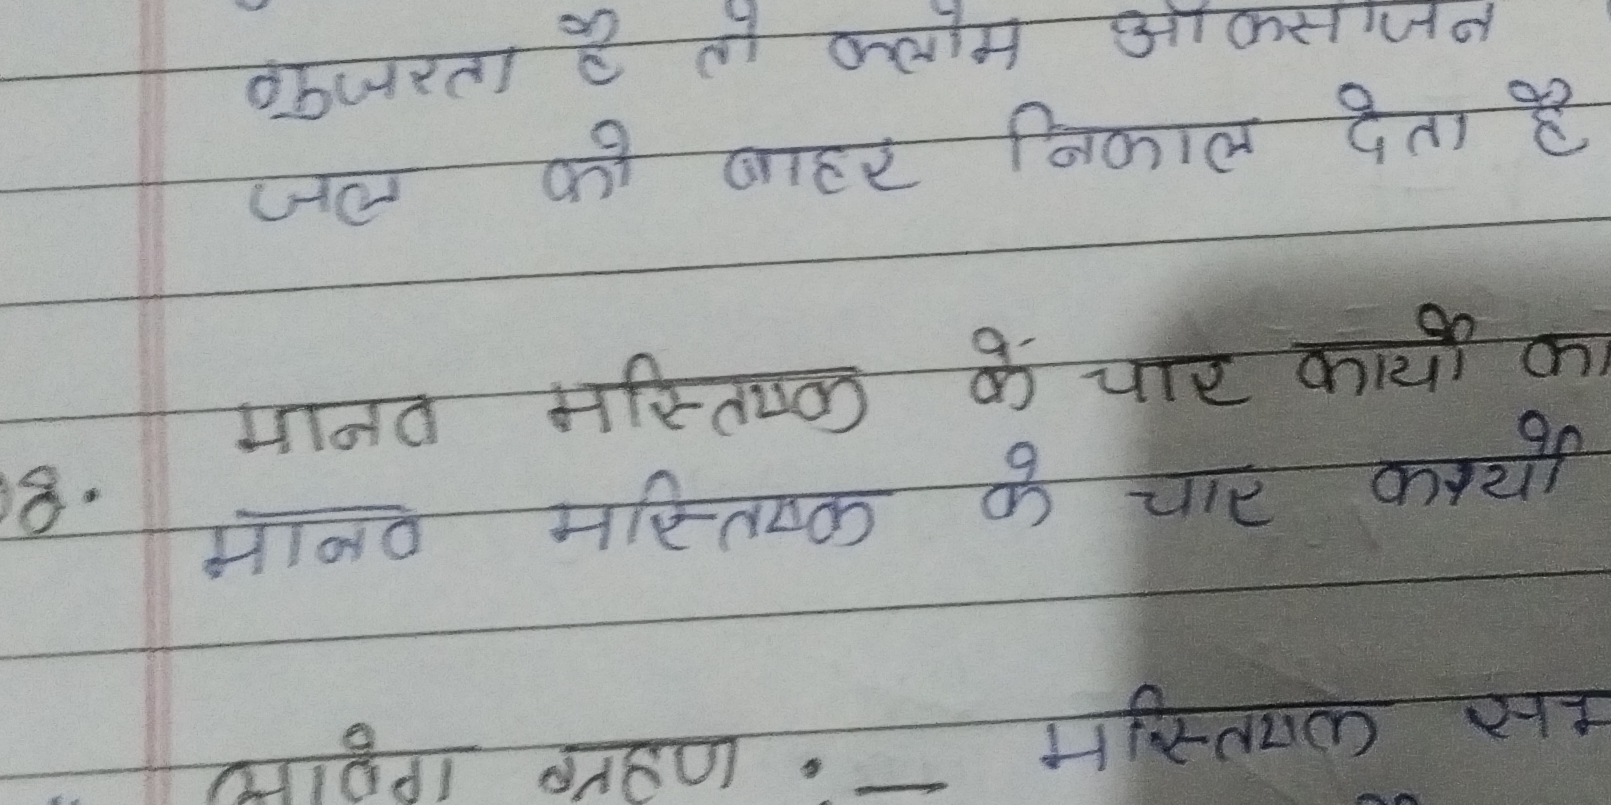 गुजरता है तो क्लोम ऑक्सीजन
जल को बाहर निकाल देता है
मानव मस्तिष्क के चार कार्यों का
8. मानव मस्तिष्क के चार कार्यों
आवेग ग्रहण :— मस्तिष्क